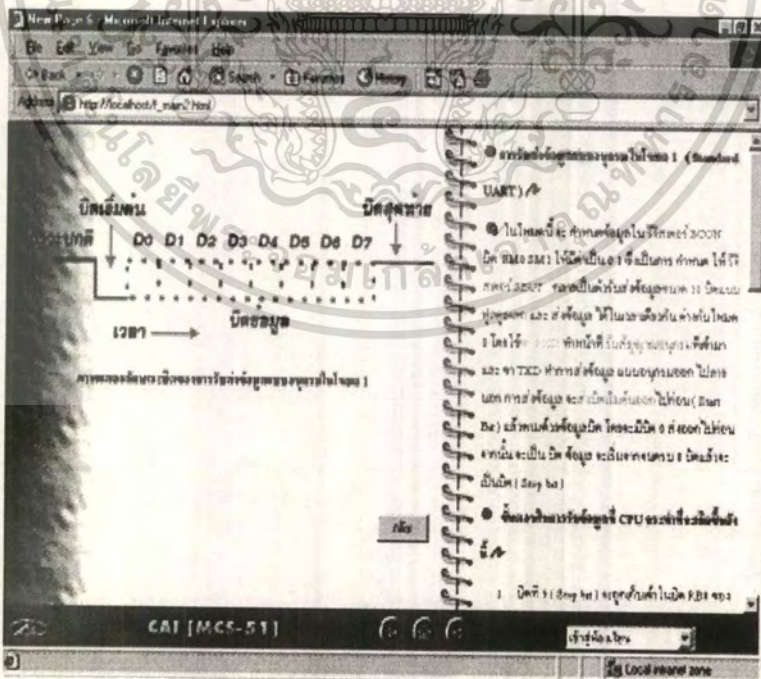 New Page 6 - Microsoft Internet Explorer
File Edit View Go Favorites Help
Back Search Favorites History
Address http://localhost/t_main2.html
บิตเริ่มต้น บิตสุดท้าย
D0 D1 D2 D3 D4 D5 D6 D7
เวลา บิตข้อมูล
ภาพแสดงลักษณะบิตของการรับส่งข้อมูลแบบอนุกรมในโหมด 1
กลับ
การรับส่งข้อมูลแบบอนุกรมในโหมด 1 (Standard
UART)
ในโหมดนี้จะกำหนดข้อมูลในรีจิสเตอร์ SCON
บิต SM0 SM1 ให้มีค่าเป็น 0 1 ซึ่งเป็นการ กำหนด ให้ รีจิ
สเตอร์ SBUF กลายเป็นตัวรับส่งข้อมูลขนาด 10 บิตแบบ
และ ส่งข้อมูล ได้ในเวลาเดียวกัน ต่างกับโหมด
0 โดยใช้ ทำหน้าที่ รับสัญญาณอนุกรมที่เข้ามา
และ ขา TXD ทำการส่งข้อมูล แบบอนุกรมออก ไปภาย
นอก การส่งข้อมูล จะส่งบิตเริ่มต้นออกไปก่อน ( Start
Bit ) แล้วตามด้วยข้อมูลบิต โดยจะมีบิต 0 ส่งออกไปก่อน
จากนั้น จะเป็น บิต ข้อมูล จะเริ่มจากจนครบ 8 บิตแล้วจะ
เป็นบิต ( Stop bit )
ขั้นตอนในการรับข้อมูลที่ CPU จะกระทำที่จะเกิดขึ้นดัง
นี้
1 บิตที่ 9 ( Stop bit ) จะถูกเก็บเข้าในบิต RB8 ของ
CAI [MCS-51]
เข้าสู่ห้องเรียน
Local intranet zone